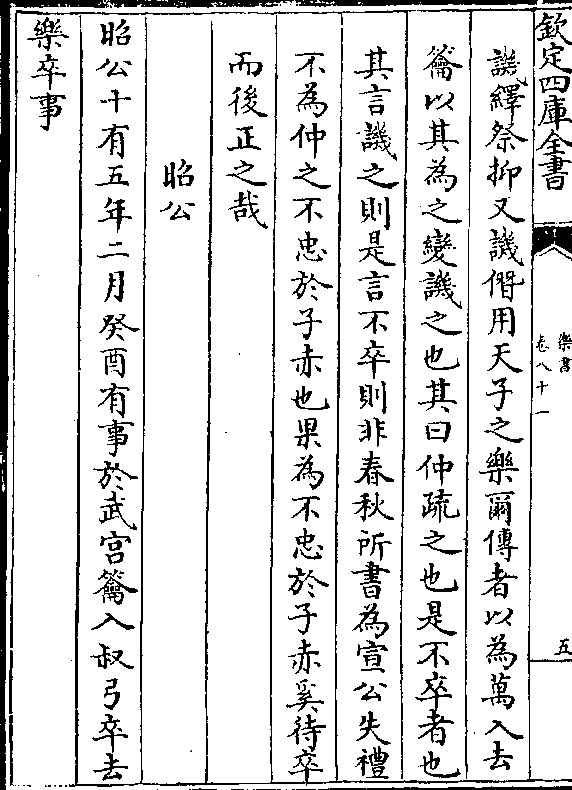 欽定四庫全書
樂書
卷八十一
五
譏繹祭抑又譏僭用天子之樂爾傳者以為萬入去
籥以其為之變譏之也其曰仲疏之也是不卒者也
其言譏之則是言不卒則非春秋所書為宣公失禮
不為仲之不忠於子赤也果為不忠於子赤奚待卒
而後正之哉
昭公
昭公十有五年二月癸酉有事於武宮籥入叔弓卒去
樂卒事